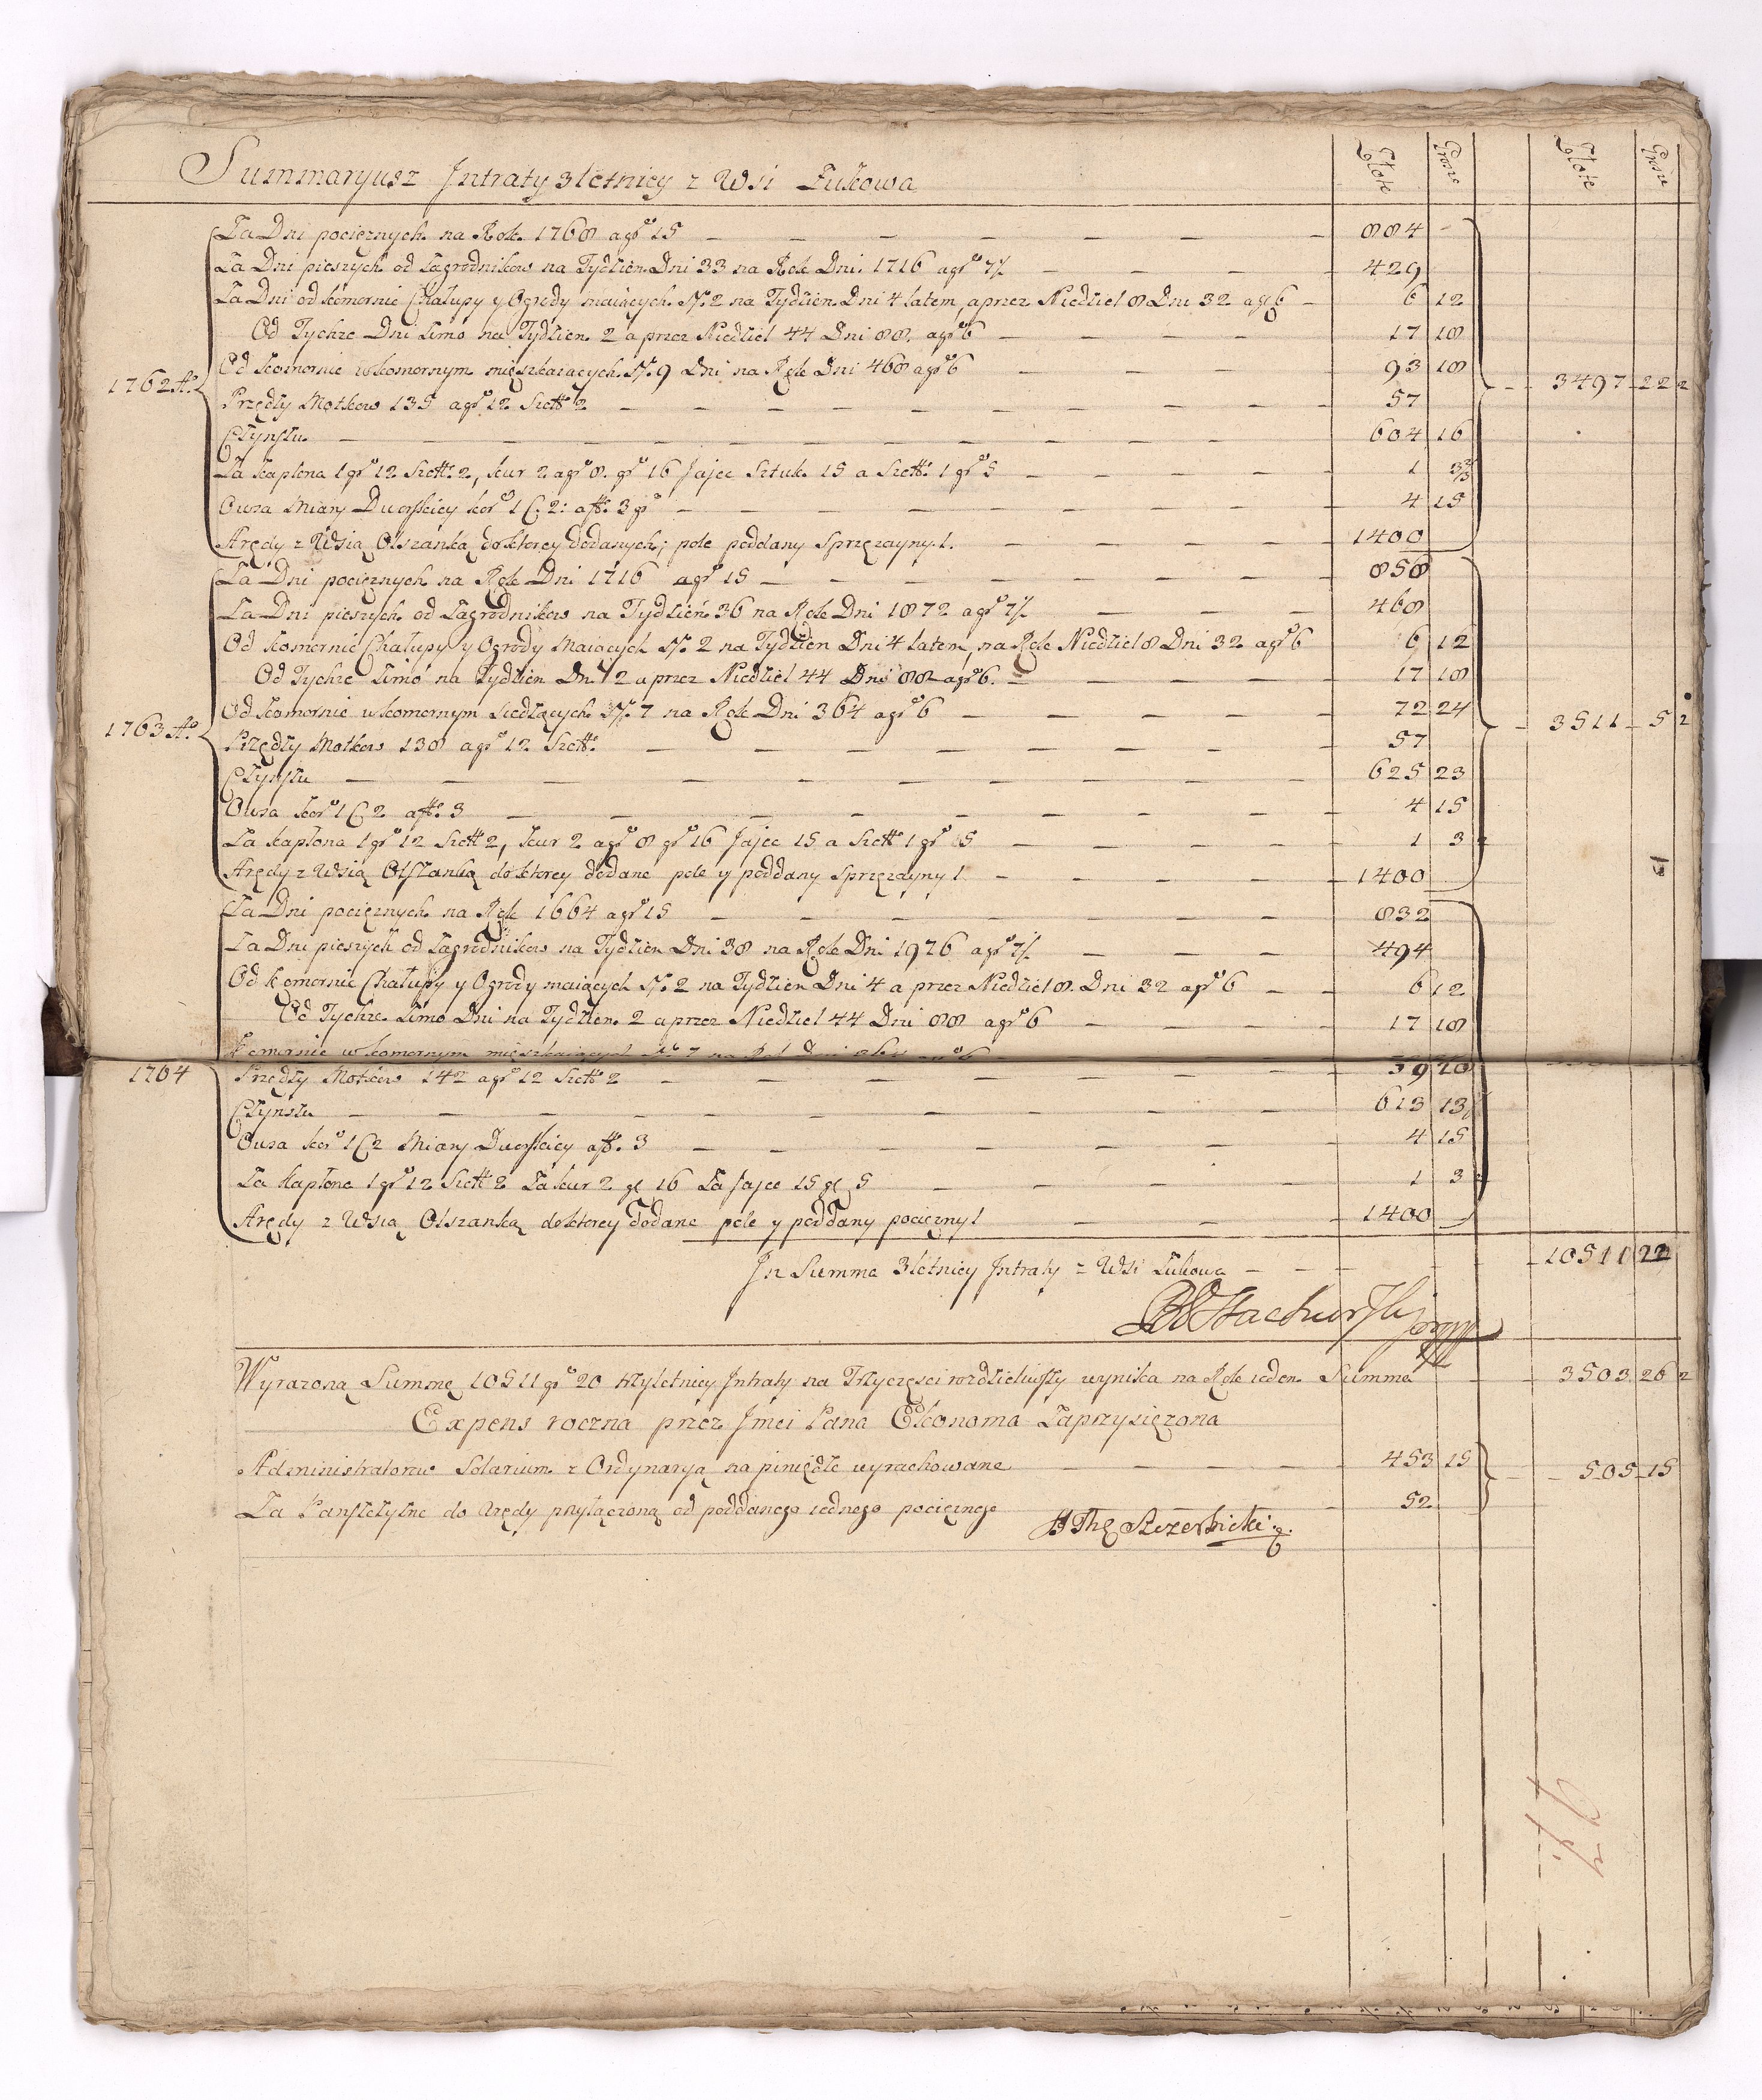 Summaryusz Jntraty 3letniey z Wsi Łukowa
Złote Grosze Złote Grosze
Za Dni pociężnych na Rok 1768 a grō 15 884 -
Za Dni pieszych od Zagrodnikow na Tydzien Dni 33 na Rok Dni 1716 a grō 7½ 429
Za Dni od komornic Chałupy y Ogrody maiących No 2 na Tydzien Dni 4 latem, a przez Niedziel 8 Dni 32 a gr 6 6 12
Od Tychże Dni Zimo na Tydzien 2 a przez Niedziel 44 Dni 88 a grō 6 17 18
Od komornic w komornym mięszkaiących No 9 Dni na Rok Dni 468 a grō 6 93 18
1762 Ao 3497 22 2
Przędzy Motkow 135 a grō 12 Szelł 2 57
Czynszu 604 16
Za kapłona 1 grō 12 Szelł 2, kur 2 a grō 8 grō 16 Jajec Sztuk 15 a Szelł 1 grō 5 1 3⅔
Owsa Miary Dworskiey kor 1 C 2: a fł 3 gr 4 15
Arędy z Wsią Olszanką do ktorey dodanych pole poddany Sprzężayny 1. 1400
Za Dni pociężnych na Rok Dni 1716 a grō 15 858
Za Dni pieszych od Zagrodnikow na Tydzień 36 na Rok Dni 1872 a grō 7½ 468
Od komornic Chałupy y Ogrody Maiących No 2 na Tydzien Dni 4 latem, na Rok Niedziel 8 Dni 32 a grō 6 6 12
Od Tychże Zimō na Tydzien Dni 2 a przez Niedziel 44 Dni 88 a grō 6. 17 18
Od komornic w komornym siedzących No 7 na Rok Dni 364 a grō 6 72 24
1763 Ao 3511 5 2
Przędzy Motkow 138 a grō 12 Szelł 57
Czynszu 625 23
Owsa kor 1 C 2 a fł 3 4 15
Za kapłona 1 grō 12 Szelł 2, kur 2 a grō 8 grō 16 Jajec 15 a Szelł 1 grō 5 1 3
Arędy z Wsią Olszanką do ktorey dodane pole y poddany Sprzężayny 1 1400
Za Dni pociężnych na Rok 1664 a grō 15 832
Za Dni pieszych od Zagrodnikow na Tydzien Dni 38 na Rok Dni 1976 a grō 7½ 494
Od komornic Chałupy y Ogrody maiących No 2 na Tydzien Dni 4 a przez Niedziel 8. Dni 32 a grō 6 6 12
Od Tychże Zimo Dni na Tydzien 2 a przez Niedziel 44 Dni 88 a grō 6 17 18
komornic w komornym mięszkaiących No 7 na Rok Dni
1764
Przędzy Motkow 142 a grō 12 Szelł 2 59 20
Czynszu 613 13
Owsa kor 1 C 2 Miary Dworskiey a fł 3 4 15
Za kapłona 1 grō 12 Szelł 2 Za kur 2 gr 16 Za Jajec 15 gr 5 1 3
Arędy z Wsią Olszanką do ktorey dodane pole y poddany pociężny 1 1400
Jn Summa 3letniey Jntraty z Wsi Łukowa 10511 22
Wyrażoną Summę 10511 grō 20 trzyletniey Jntraty na Trzyczęści rozdzieliwszy wynika na Rok ieden Summa 3503 26 2
Expens roczna przez Jmci Pana Ekonoma Zaprzysiężona
Administratorowi Solarium z Ordynaryą na piniędze wyrachowane 453 15 505 15
Za Panszczyznę do Arędy przyłączoną od poddanego iednego pociężnego 52